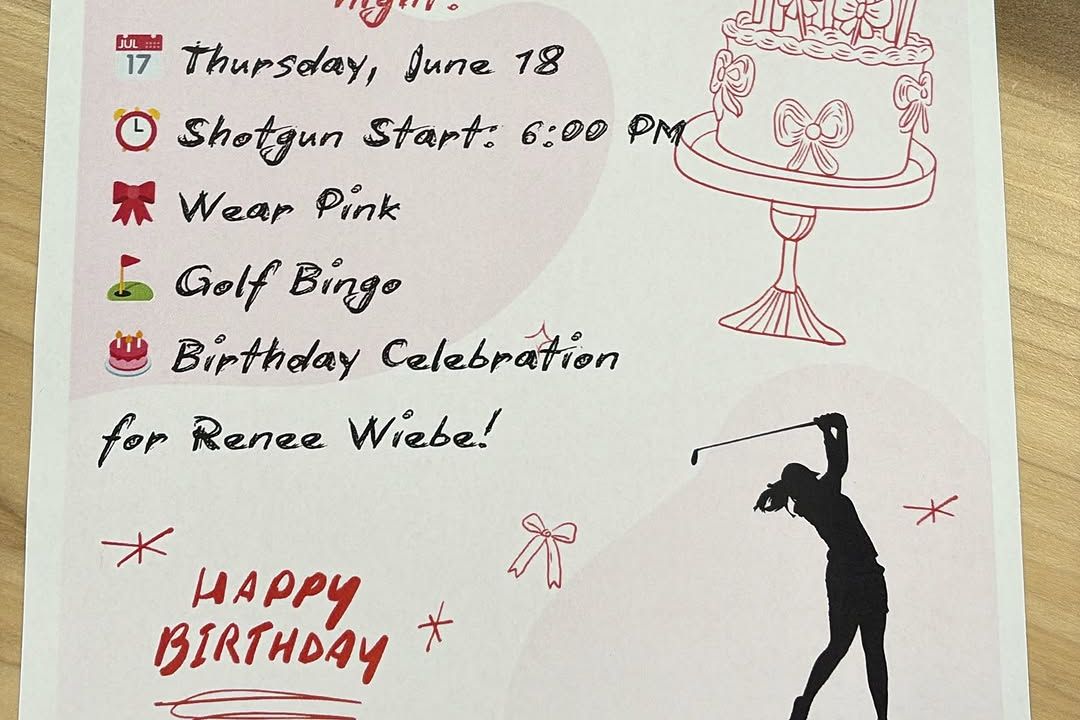 night!
JUL
17
Thursday, June 18
Shotgun Start: 6:00 PM
Wear Pink
Golf Bingo
Birthday Celebration
for Renee Wiebe!
HAPPY
BIRTHDAY